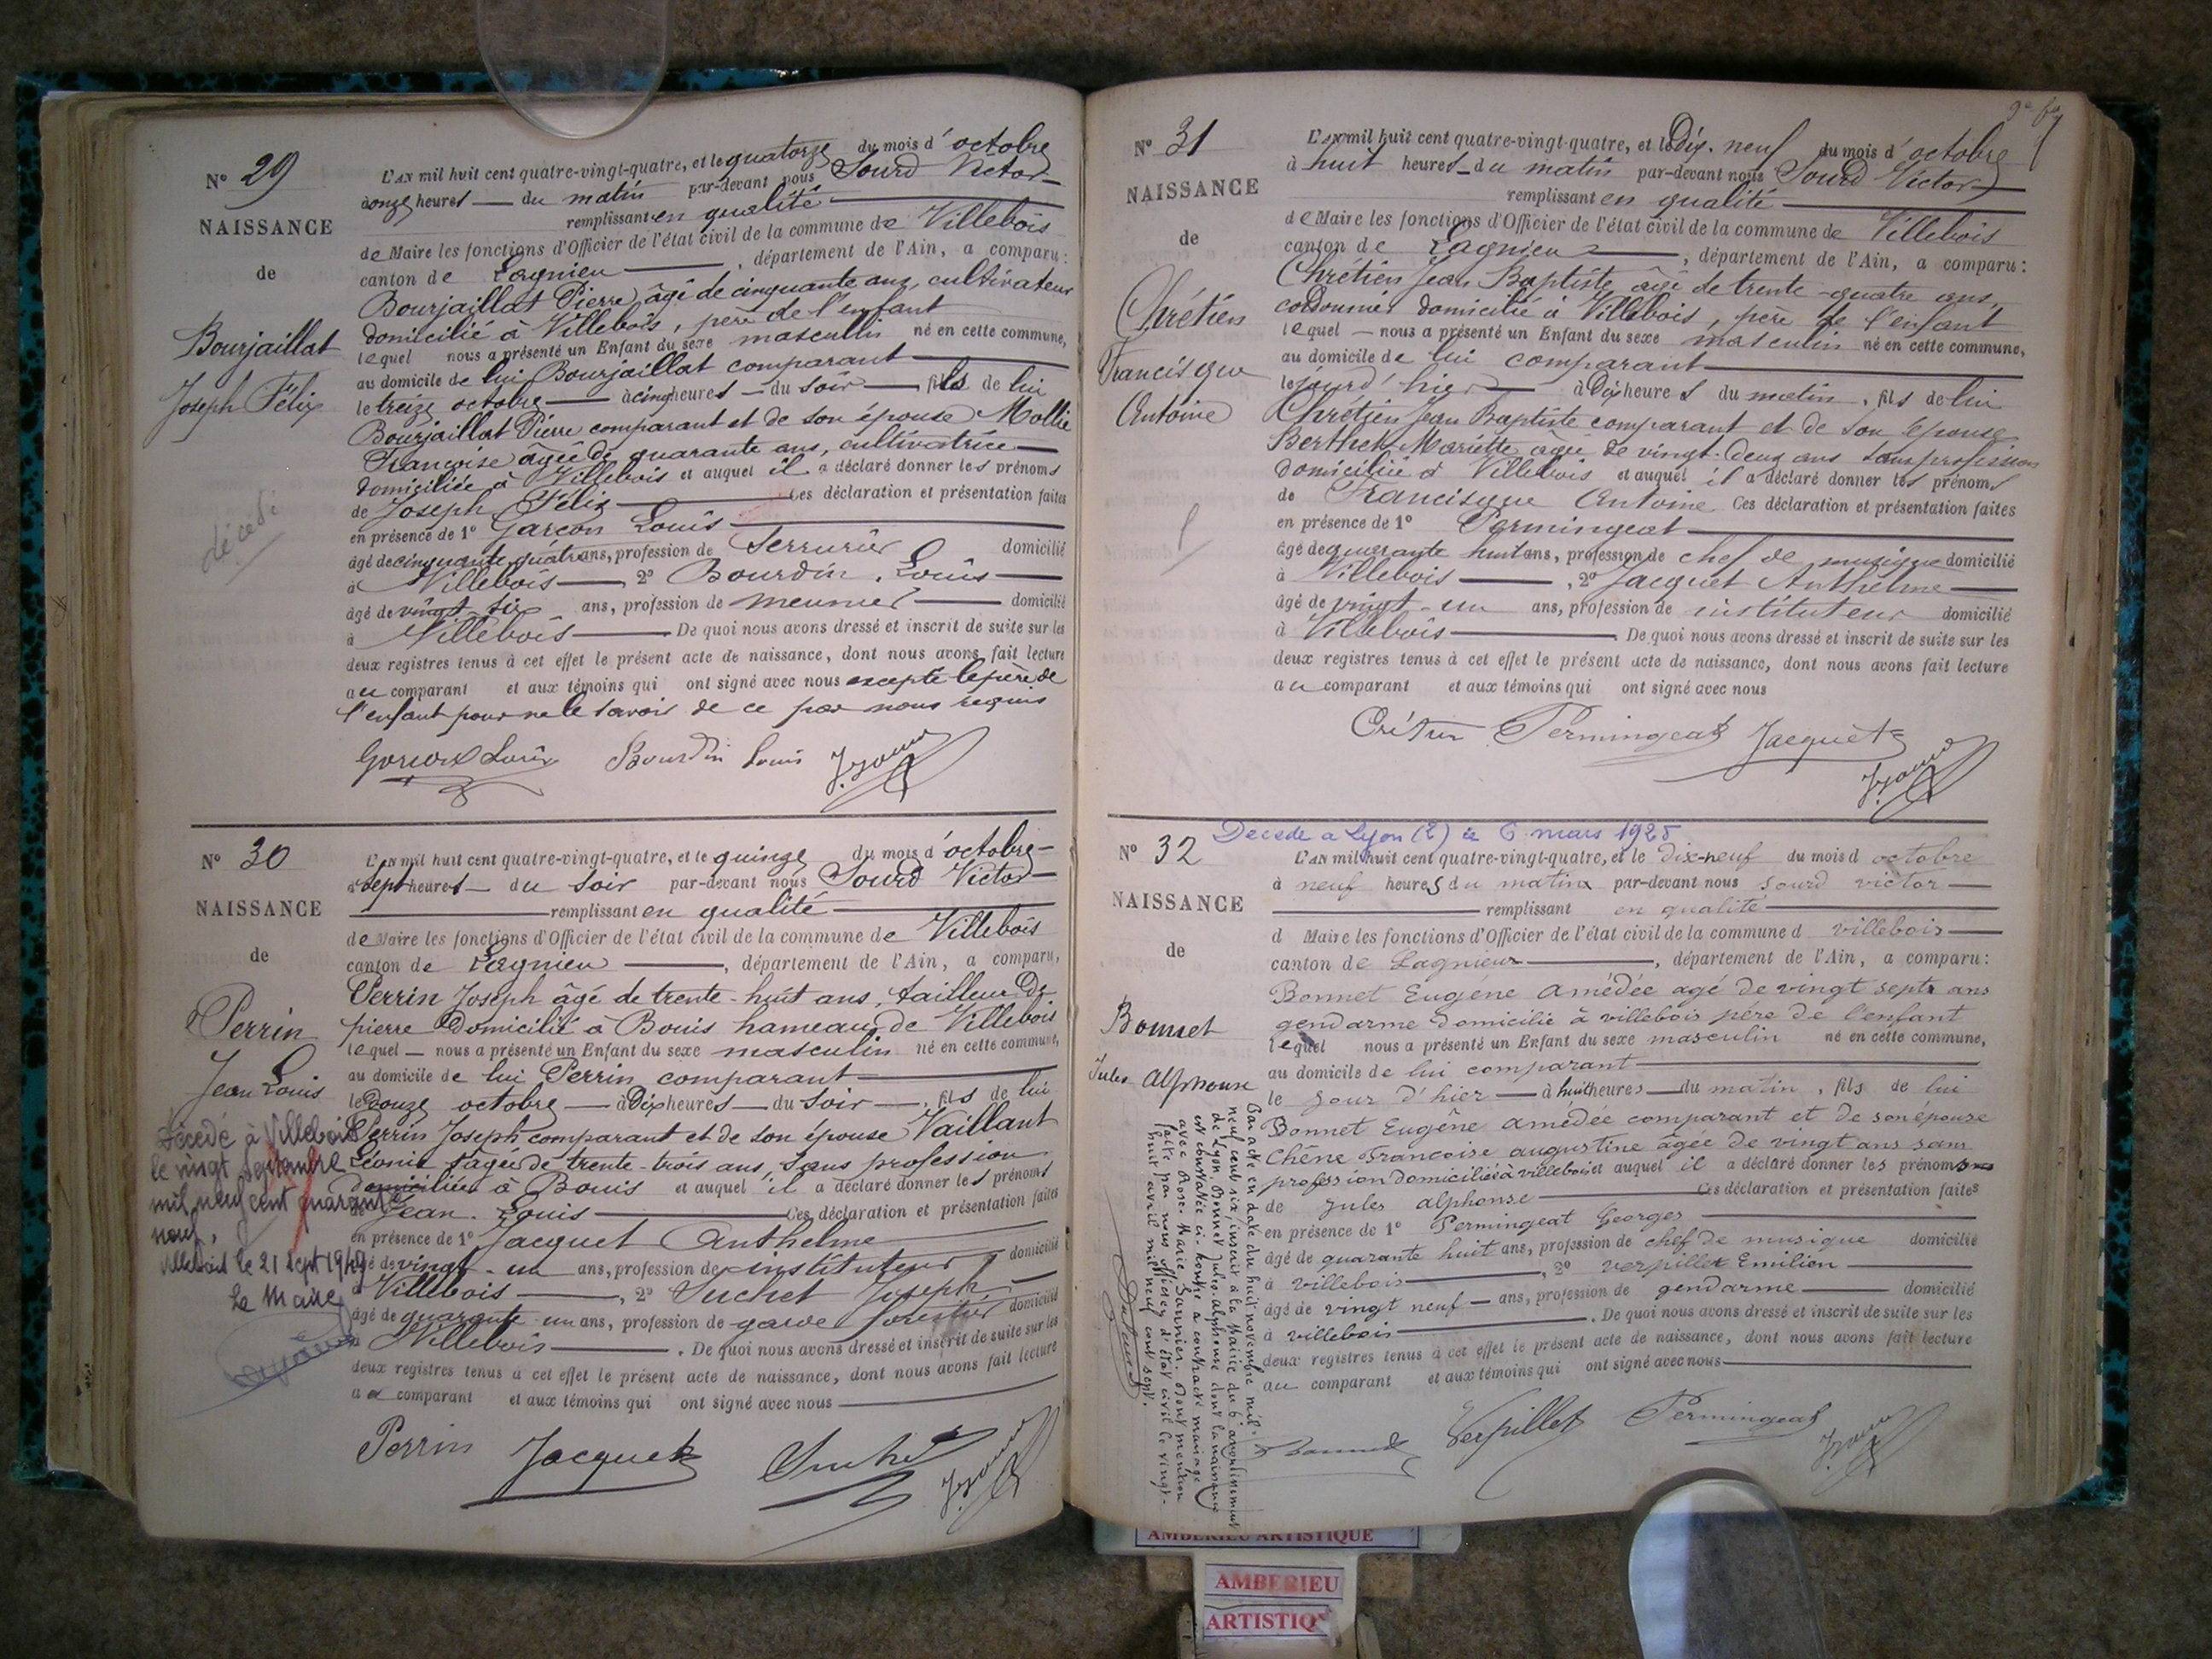 Nº 29
NAISSANCE
de
Bourjaillat
Joseph Félix
décédé
L'AN mil huit cent quatre-vingt-quatre, et le quatorze du mois d'octobre
à onze heures — du matin par-devant nous Sourd Victor —
remplissant en qualité
de Maire les fonctions d'Officier de l'état civil de la commune de Villebois
canton de Lagnieu —, département de l'Ain, a comparu:
Bourjaillat Pierre, âgé de cinquante ans, cultivateur
domicilié à Villebois, père de l'enfant
lequel nous a présenté un Enfant du sexe masculin né en cette commune,
au domicile de lui Bourjaillat comparant —
le treize octobre — à cinq heures — du soir — fils de lui
Bourjaillat Pierre comparant et de son épouse Mollie
Françoise âgée de quarante ans, cultivatrice —
domiciliée à Villebois et auquel il a déclaré donner les prénoms
de Joseph Félix — Ces déclaration et présentation faites
en présence de 1º Garçon Louis —
âgé de cinquante quatre ans, profession de Serrurier domicilié
à Villebois —, 2º Bourdin Louis —
âgé de vingt-six ans, profession de meunier — domicilié
à Villebois — De quoi nous avons dressé et inscrit de suite sur les
deux registres tenus à cet effet le présent acte de naissance, dont nous avons fait lecture
au comparant et aux témoins qui ont signé avec nous excepté le père de
l'enfant pour ne le savoir de ce par nous requis
Bourdin Louis
Nº 30
NAISSANCE
de
Perrin
Jean Louis
Décédé à Villebois
le vingt Septembre
mil neuf cent quarante
neuf,
Villebois le 21 Sept 1949
Le Maire
L'AN mil huit cent quatre-vingt-quatre, et le quinze du mois d'octobre —
à sept heures — du soir par-devant nous Sourd Victor —
remplissant en qualité —
de Maire les fonctions d'Officier de l'état civil de la commune de Villebois
canton de Lagnieu —, département de l'Ain, a comparu,
Perrin Joseph âgé de trente-huit ans, tailleur de
pierre domicilié à Bouis hameau de Villebois
lequel — nous a présenté un Enfant du sexe masculin né en cette commune,
au domicile de lui Perrin comparant —
le douze octobre — à dix heures — du soir —, fils de lui
Perrin Joseph comparant et de son épouse Vaillant
Léonie âgée de trente-trois ans, sans profession
domiciliée à Bouis et auquel il a déclaré donner les prénoms
de Jean Louis — Ces déclaration et présentation faites
en présence de 1º Jacquet Anthelme —
âgé de vingt-un ans, profession de instituteur domicilié
à Villebois —, 2º Suchet Joseph —
âgé de quarante-un ans, profession de garde forestier domicilié
à Villebois —. De quoi nous avons dressé et inscrit de suite sur les
deux registres tenus à cet effet le présent acte de naissance, dont nous avons fait lecture
au comparant et aux témoins qui ont signé avec nous —
Perrin Jacquet Suchet
Nº 31
NAISSANCE
de
Chrétien
Francisque
Antoine
L'AN mil huit cent quatre-vingt-quatre, et le dix-neuf du mois d'octobre
à huit heures — du matin par-devant nous Sourd Victor —
remplissant en qualité —
de Maire les fonctions d'Officier de l'état civil de la commune de Villebois
canton de Lagnieu —, département de l'Ain, a comparu:
Chrétien Jean Baptiste âgé de trente-quatre ans,
cordonnier domicilié à Villebois, père de l'enfant
lequel — nous a présenté un Enfant du sexe masculin né en cette commune,
au domicile de lui comparant —
le jourd'hier — à dix heures du matin, fils de lui
Chrétien Jean Baptiste comparant et de son épouse
Berthet Mariette âgée de vingt-deux ans sans profession
domiciliée à Villebois et auquel il a déclaré donner les prénoms
de Francisque Antoine Ces déclaration et présentation faites
en présence de 1º Permingeat —
âgé de quarante huit ans, profession de chef de musique domicilié
à Villebois —, 2º Jacquet Anthelme —
âgé de vingt-un ans, profession de instituteur domicilié
à Villebois —. De quoi nous avons dressé et inscrit de suite sur les
deux registres tenus à cet effet le présent acte de naissance, dont nous avons fait lecture
au comparant et aux témoins qui ont signé avec nous
Permingeat Jacquet
Nº 32
NAISSANCE
de
Bonnet
Jules Alphonse
Décédé à Lyon (2) le 6 mars 1925
L'AN mil huit cent quatre-vingt-quatre, et le dix-neuf du mois d octobre
à neuf heures du matin par-devant nous Sourd victor —
remplissant en qualité —
d Maire les fonctions d'Officier de l'état civil de la commune d villebois —
canton de Lagnieu —, département de l'Ain, a comparu:
Bonnet Eugène Amédée agé de vingt sept ans
gendarme domicilié à villebois père de l'enfant
lequel nous a présenté un Enfant du sexe masculin né en cette commune,
au domicile de lui comparant —
le jour d'hier — à huit heures — du matin, fils de lui
Bonnet Eugêne amédée comparant et de son épouse
Chêne Francoise augustine âgée de vingt ans sans
profession domiciliée à villebois et auquel il a déclaré donner les prénoms
de Jules alphonse — Ces déclaration et présentation faites
en présence de 1º Permingeat Georges —
âgé de quarante huit ans, profession de chef de musique domicilié
à villebois —, 2º verpillet Emilien —
âgé de vingt neuf — ans, profession de gendarme — domicilié
à villebois —. De quoi nous avons dressé et inscrit de suite sur les
deux registres tenus à cet effet le présent acte de naissance, dont nous avons fait lecture
au comparant et aux témoins qui ont signé avec nous —
Bonnet Verpillet Permingeat
Par acte en date du huit novembre mil-
neuf cent six, inscrit à la mairie du 6e arrondissement
de Lyon, Bonnet Jules Alphonse dont la naissance
est constatée ci-contre a contracté mariage
avec Rose Marie Garnier. Dont mention
faite par nous officier d'état civil le vingt-
huit avril mil neuf cent sept.
AMBERIEU ARTISTIQUE
AMBERIEU
ARTISTIQ